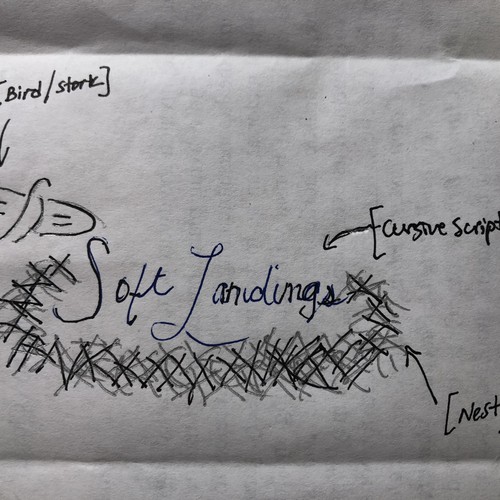 [Bird/stork]
[Cursive Script
Soft Landings
[Nest